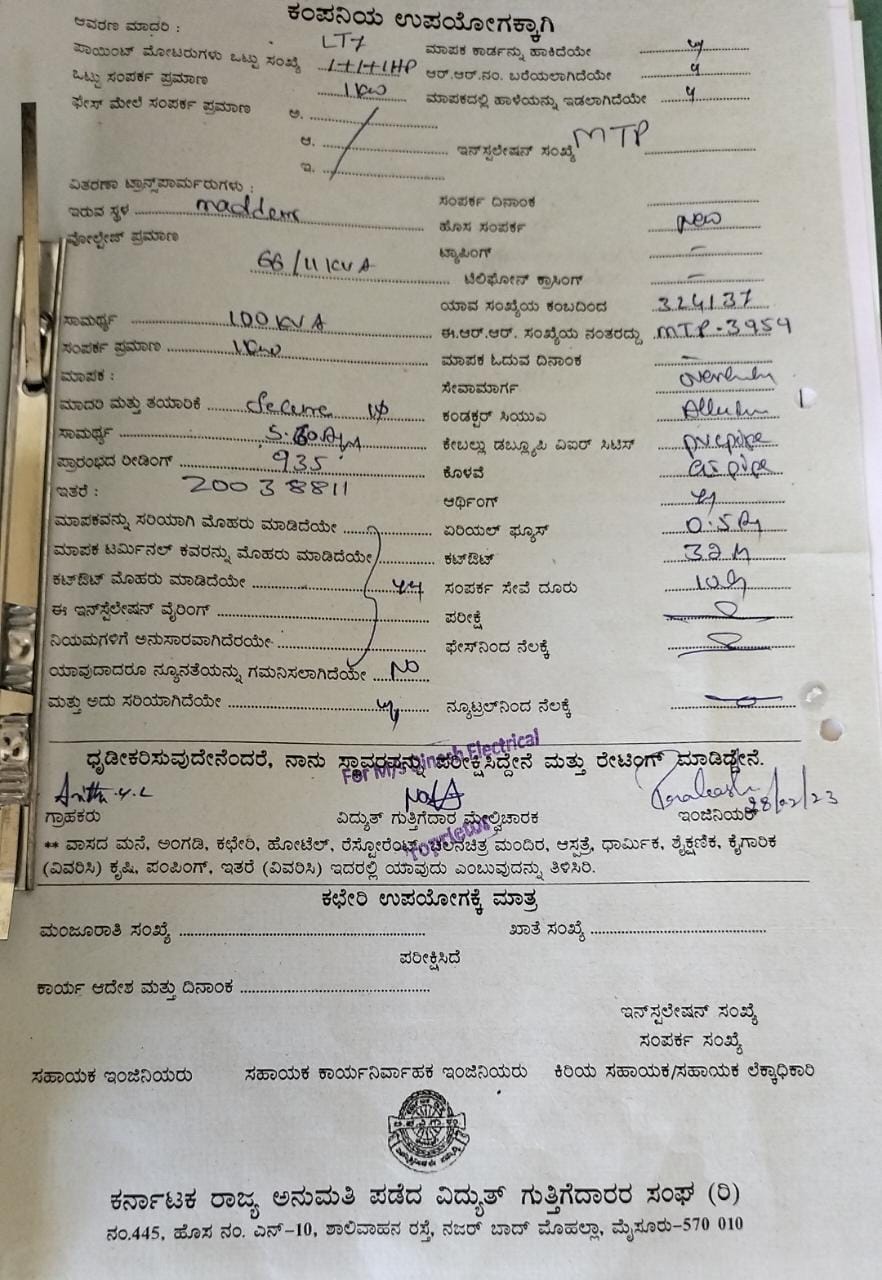 ಕಂಪನಿಯ ಉಪಯೋಗಕ್ಕಾಗಿ
ಆವರಣ ಮಾದರಿ : LT7 ಮಾಪಕ ಕಾರ್ಡನ್ನು ಹಾಕಿದೆಯೇ
ಪಾಯಿಂಟ್ ಮೋಟರುಗಳು ಒಟ್ಟು ಸಂಖ್ಯೆ 1+1+1HP ಆರ್.ಆರ್.ನಂ. ಬರೆಯಲಾಗಿದೆಯೇ
ಒಟ್ಟು ಸಂಪರ್ಕ ಪ್ರಮಾಣ 1kw ಮಾಪಕದಲ್ಲಿ ಹಾಳೆಯನ್ನು ಇಡಲಾಗಿದೆಯೇ
ಫೇಸ್ ಮೇಲೆ ಸಂಪರ್ಕ ಪ್ರಮಾಣ ಅ.
ಆ. ಇನ್‌ಸ್ಟಲೇಷನ್ ಸಂಖ್ಯೆ MTP
ಇ.
ವಿತರಣಾ ಟ್ರಾನ್ಸ್‌ಫಾರ್ಮರುಗಳು : ಸಂಪರ್ಕ ದಿನಾಂಕ
ಇರುವ ಸ್ಥಳ ಹೊಸ ಸಂಪರ್ಕ new
ವೋಲ್ಟೇಜ್ ಪ್ರಮಾಣ ಟ್ಯಾಪಿಂಗ್ –
66/11 KVA ಟೆಲಿಫೋನ್ ಕ್ರಾಸಿಂಗ್ –
ಸಾಮರ್ಥ್ಯ 100 KVA ಯಾವ ಸಂಖ್ಯೆಯ ಕಂಬದಿಂದ
ಸಂಪರ್ಕ ಪ್ರಮಾಣ 1kw ಈ.ಆರ್.ಆರ್. ಸಂಖ್ಯೆಯ ನಂತರದ್ದು MTP-3954
ಮಾಪಕ : ಮಾಪಕ ಓದುವ ದಿನಾಂಕ –
ಸೇವಾಮಾರ್ಗ
ಮಾದರಿ ಮತ್ತು ತಯಾರಿಕೆ Secure ಕಂಡಕ್ಟರ್ ಸಿಯುಎ
ಸಾಮರ್ಥ್ಯ ಕೇಬಲ್ಲು ಡಬ್ಲ್ಯೂಪಿ ವಿಐರ್ ಸಿಟಿಸ್ pvcpipe
ಪ್ರಾರಂಭದ ರೀಡಿಂಗ್ 935 ಕೊಳವೆ GI pipe
ಇತರೆ : 20038811 ಆರ್ಥಿಂಗ್
ಮಾಪಕವನ್ನು ಸರಿಯಾಗಿ ಮೊಹರು ಮಾಡಿದೆಯೇ ಏರಿಯಲ್ ಫ್ಯೂಸ್
ಮಾಪಕ ಟರ್ಮಿನಲ್ ಕವರನ್ನು ಮೊಹರು ಮಾಡಿದೆಯೇ ಕಟ್‌ಔಟ್
ಕಟ್‌ಔಟ್ ಮೊಹರು ಮಾಡಿದೆಯೇ ಸಂಪರ್ಕ ಸೇವೆ ದೂರು
ಈ ಇನ್‌ಸ್ಟಲೇಷನ್ ವೈರಿಂಗ್ ಪರೀಕ್ಷೆ
ನಿಯಮಗಳಿಗೆ ಅನುಸಾರವಾಗಿದೆರಯೇ ಫೇಸ್‌ನಿಂದ ನೆಲಕ್ಕೆ
ಯಾವುದಾದರೂ ನ್ಯೂನತೆಯನ್ನು ಗಮನಿಸಲಾಗಿದೆಯೇ NO
ಮತ್ತು ಅದು ಸರಿಯಾಗಿದೆಯೇ ನ್ಯೂಟ್ರಲ್‌ನಿಂದ ನೆಲಕ್ಕೆ
ಧೃಡೀಕರಿಸುವುದೇನೆಂದರೆ, ನಾನು ಸ್ಥಾವರವನ್ನು ಪರೀಕ್ಷಿಸಿದ್ದೇನೆ ಮತ್ತು ರೇಟಿಂಗ್ ಮಾಡಿದ್ದೇನೆ.
Electrical
28/02/23
ಗ್ರಾಹಕರು ವಿದ್ಯುತ್ ಗುತ್ತಿಗೆದಾರ ಮೇಲ್ವಿಚಾರಕ ಇಂಜಿನಿಯರ್
** ವಾಸದ ಮನೆ, ಅಂಗಡಿ, ಕಛೇರಿ, ಹೋಟೆಲ್, ರೆಸ್ಟೋರೆಂಟ್, ಚಲನಚಿತ್ರ ಮಂದಿರ, ಆಸ್ಪತ್ರೆ, ಧಾರ್ಮಿಕ, ಶೈಕ್ಷಣಿಕ, ಕೈಗಾರಿಕ
(ವಿವರಿಸಿ) ಕೃಷಿ, ಪಂಪಿಂಗ್, ಇತರೆ (ವಿವರಿಸಿ) ಇದರಲ್ಲಿ ಯಾವುದು ಎಂಬುವುದನ್ನು ತಿಳಿಸಿರಿ.
ಕಛೇರಿ ಉಪಯೋಗಕ್ಕೆ ಮಾತ್ರ
ಮಂಜೂರಾತಿ ಸಂಖ್ಯೆ ಖಾತೆ ಸಂಖ್ಯೆ
ಪರೀಕ್ಷಿಸಿದೆ
ಕಾರ್ಯ ಆದೇಶ ಮತ್ತು ದಿನಾಂಕ
ಇನ್‌ಸ್ಟಲೇಷನ್ ಸಂಖ್ಯೆ
ಸಂಪರ್ಕ ಸಂಖ್ಯೆ
ಸಹಾಯಕ ಇಂಜಿನಿಯರು ಸಹಾಯಕ ಕಾರ್ಯನಿರ್ವಾಹಕ ಇಂಜಿನಿಯರು ಕಿರಿಯ ಸಹಾಯಕ/ಸಹಾಯಕ ಲೆಕ್ಕಾಧಿಕಾರಿ
ಕರ್ನಾಟಕ ರಾಜ್ಯ ಅನುಮತಿ ಪಡೆದ ವಿದ್ಯುತ್ ಗುತ್ತಿಗೆದಾರರ ಸಂಘ (ರಿ)
ನಂ.445, ಹೊಸ ನಂ. ಎನ್-10, ಶಾಲಿವಾಹನ ರಸ್ತೆ, ನಜರ್ ಬಾದ್ ಮೊಹಲ್ಲಾ, ಮೈಸೂರು-570 010